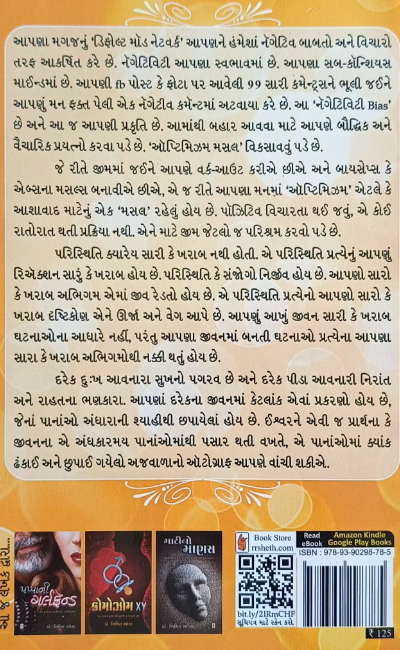 આપણા મગજનું 'ડિફોલ્ટ મૉડ નેટવર્ક' આપણને હંમેશાં નૅગેટિવ બાબતો અને વિચારો
તરફ આકર્ષિત કરે છે. નૅગેટિવિટી આપણા સ્વભાવમાં છે. આપણા સબ-કૉન્શિયસ
માઈન્ડમાં છે. આપણી fb પોસ્ટ કે ફોટા પર આવેલી 99 સારી કમેન્ટ્સને ભૂલી જઈને
આપણું મન ફક્ત પેલી એક નૅગેટીવ કમૅન્ટમાં અટવાયા કરે છે. આ 'નૅગેટિવિટી Bias'
છે અને આ જ આપણી પ્રકૃતિ છે. આમાંથી બહાર આવવા માટે આપણે બૌદ્ધિક અને
વૈચારિક પ્રયત્નો કરવા પડે છે. 'ઑપ્ટિમિઝમ મસલ' વિકસાવવું પડે છે.
જે રીતે જીમમાં જઈને આપણે વર્ક-આઉટ કરીએ છીએ અને બાયસેપ્સ કે
એબ્સના મસલ્સ બનાવીએ છીએ, એ જ રીતે આપણા મનમાં 'ઑપ્ટિમિઝમ' એટલે કે
આશાવાદ માટેનું એક 'મસલ' રહેલું હોય છે. પૉઝિટિવ વિચારતા થઈ જવું, એ કોઈ
રાતોરાત થતી પ્રક્રિયા નથી. એને માટે જીમ જેટલો જ પરિશ્રમ કરવો પડે છે.
પરિસ્થિતિ ક્યારેય સારી કે ખરાબ નથી હોતી. એ પરિસ્થિતિ પ્રત્યેનું આપણું
રિઍક્શન સારું કે ખરાબ હોય છે. પરિસ્થિતિ કે સંજોગો નિર્જીવ હોય છે. આપણો સારો
કે ખરાબ અભિગમ એમાં જીવ રેડતો હોય છે. એ પરિસ્થિતિ પ્રત્યેનો આપણો સારો કે
ખરાબ દૃષ્ટિકોણ એને ઊર્જા અને વેગ આપે છે. આપણું આખું જીવન સારી કે ખરાબ
ઘટનાઓના આધારે નહીં, પરંતુ આપણા જીવનમાં બનતી ઘટનાઓ પ્રત્યેના આપણા
સારા કે ખરાબ અભિગમોથી નક્કી થતું હોય છે.
દરેક દુઃખ આવનારા સુખનો પગરવ છે અને દરેક પીડા આવનારી નિરાંત
અને રાહતના ભણકારા. આપણાં દરેકના જીવનમાં કેટલાંક એવાં પ્રકરણો હોય છે,
જેનાં પાનાંઓ અંધારાની શ્યાહીથી છપાયેલાં હોય છે. ઈશ્વરને એવી જ પ્રાર્થના કે
જીવનના એ અંધકારમય પાનાંઓમાંથી પસાર થતી વખતે, એ પાનાંઓમાં ક્યાંક
ઢંકાઈ અને છુપાઈ ગયેલો અજવાળાનો ઑટોગ્રાફ આપણે વાંચી શકીએ.
આ જ લેખક દ્વારા...
પપ્પાની
ગર્લફ્રેન્ડ
ક્રોમોઝોમ XY
માટીનો
માણસ
Book Store
rrsheth.com
bit.ly/2IRmCHF
સૂચિપત્ર માટે સ્કૅન કરો.
Read
eBook
Amazon Kindle
Google Play Books
ISBN : 978-93-90298-78-5
₹ 125